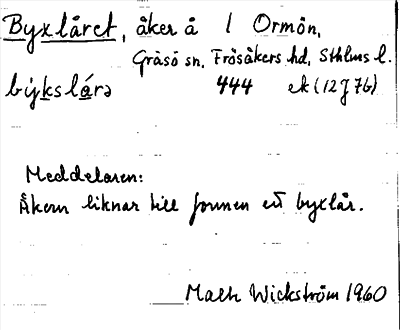 Byxlåret, åker å 1 Ormön,
Gräsö sn, Frösåkers hd, Sthlms l.
býkslárə 444 ek (12 J 7b)
Meddelaren:
Åkern liknar till formen ett byxlår.
Math Wickström 1960